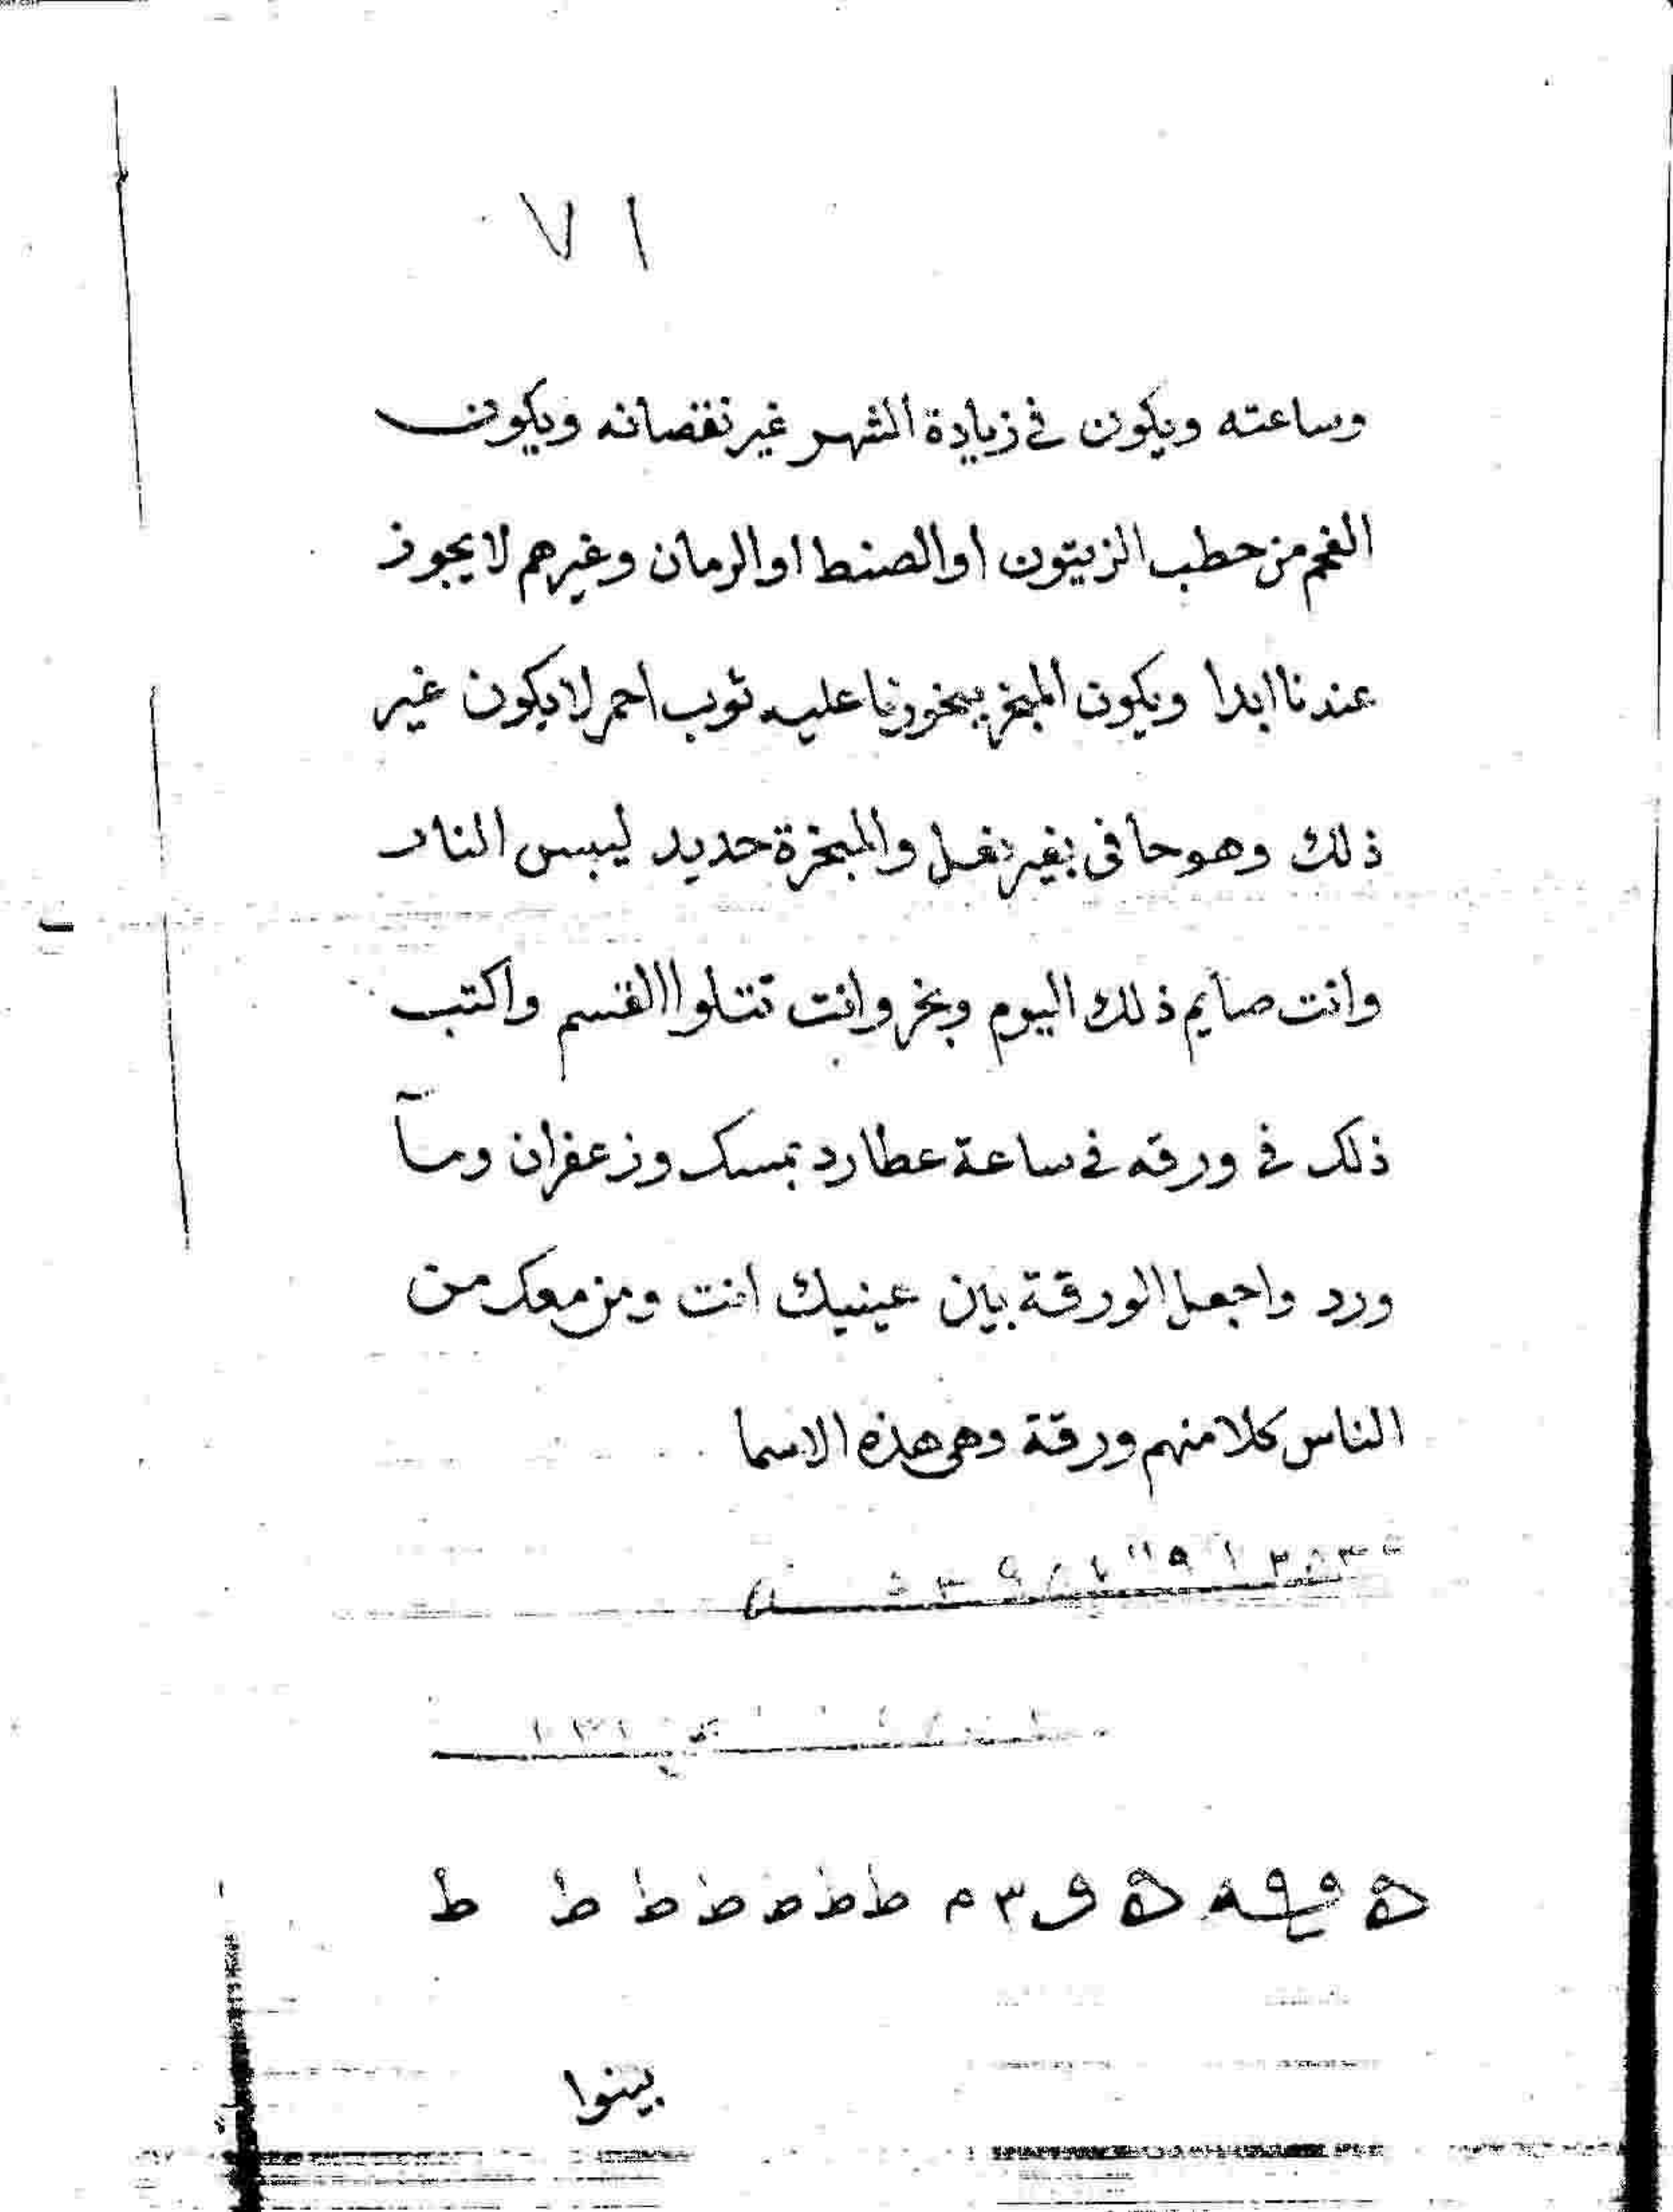 ٧١
وساعته ويكون في زيادة الشهر غير نقصانه ويكون
الفحم من حطب الزيتون او الصنط او الرمان وغيرهم لا يجوز
عندنا ابدا ويكون المبخر ببخورنا عليه ثوب احمر لا يكون غير
ذلك وهو حافى بغير نعل والمبخرة حديد ليبس النار
وانت صايم ذلك اليوم وبخر وانت تتلوا القسم واكتب
ذلك في ورقه في ساعة عطارد بمسك وزعفران ومآ
ورد واجعل الورقة بين عينيك انت ومن معك من
الناس كلا منهم ورقة وهى هذه الاسما
٣ م ط ط ط ط ط ط ط
بينوا